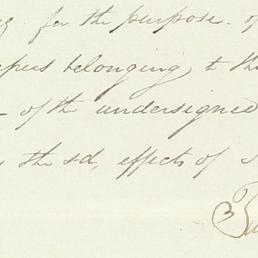 for the purpose of
belonging to the
of the undersigned
the sd, effects of